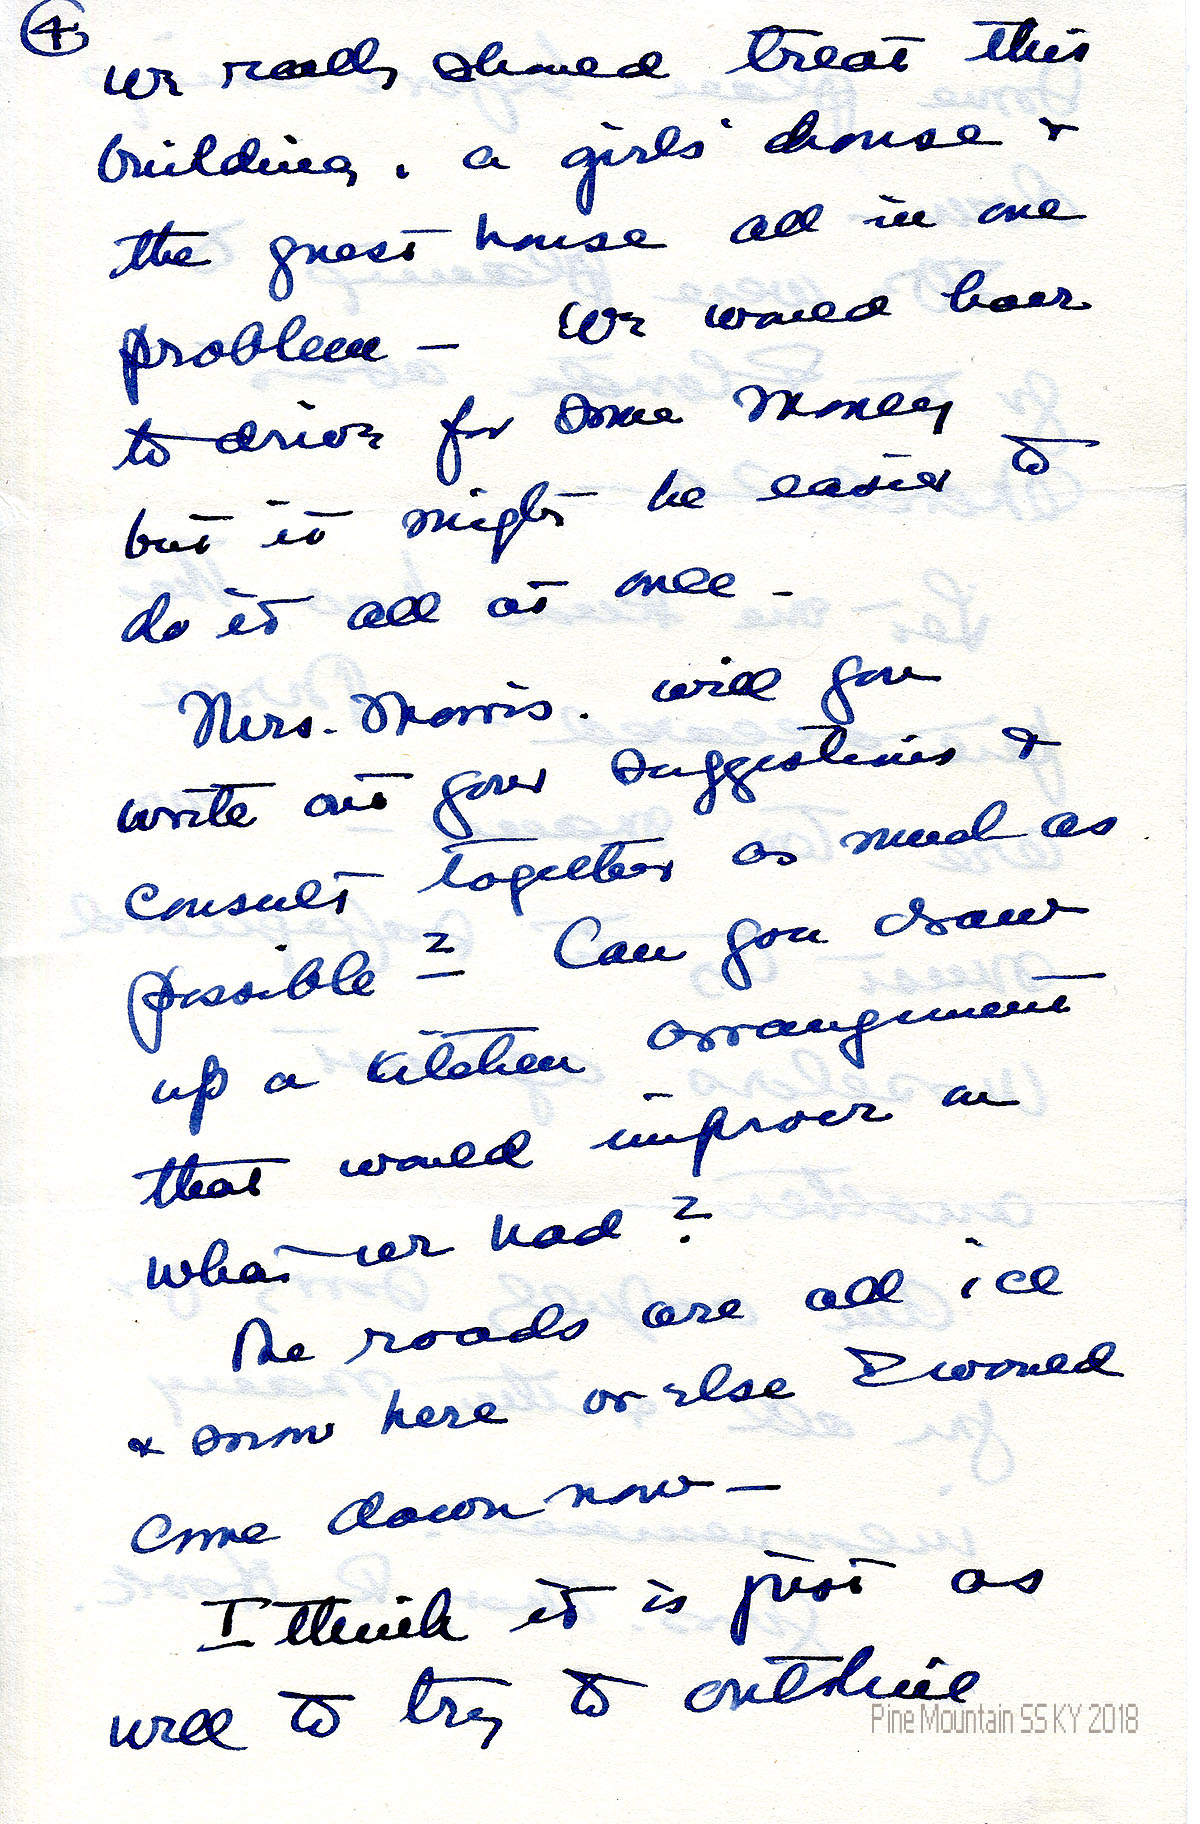 4
we really should treat this
building, a girls' house &
the guest house all in one
problem — We would have
to drive for some money
but it might be easier to
do it all at once -
Mrs. Morris. will you
write out your suggestions &
consult together as much as
possible? Can you draw
up a kitchen arrangement
that would improve on
what we had?
The roads are all ice
& snow here or else I would
come down now —
I think it is just as
well to try to outline
Pine Mountain SS KY 2018